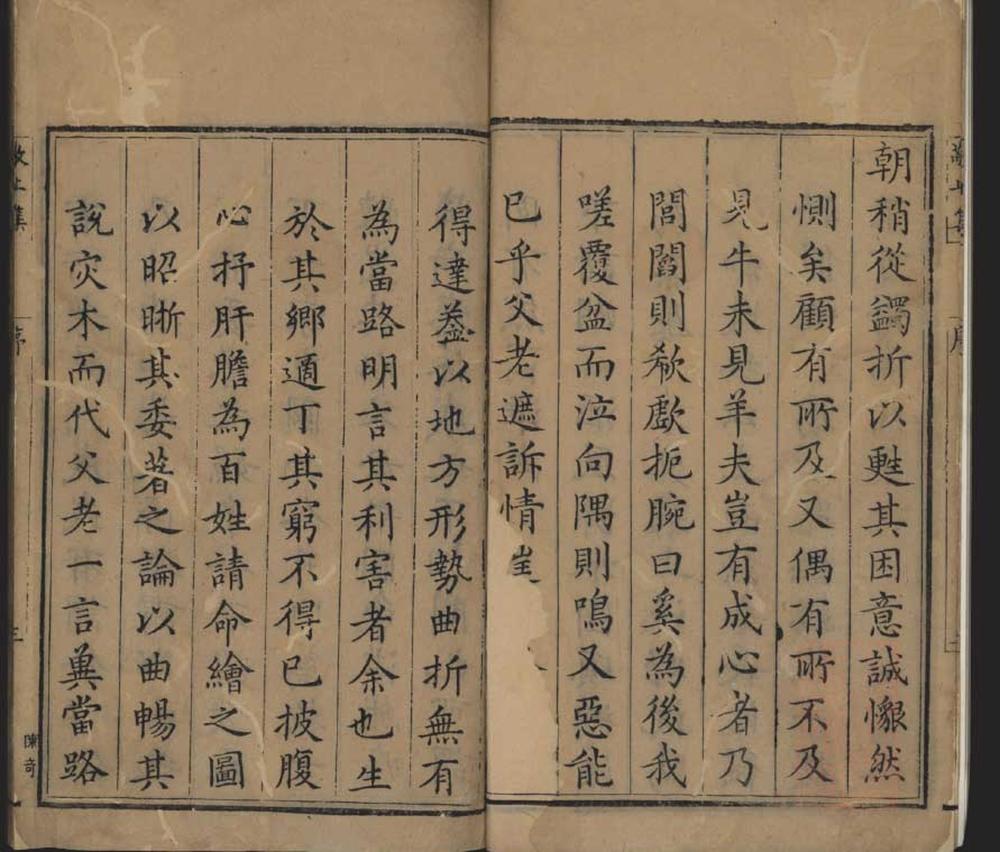 朝稍從蠲折以甦其困意誠懇然
惻矣顧有所及又偶有所不及
見牛未見羊夫豈有成心者乃
閭閻則欷歔扼腕曰奚為後我
嗟覆盆而泣向隅則鳴又惡能
已乎父老遮訴情
得達葢以地方形勢曲折無有
為當路明言其利害者余也生
於其鄉適丁其窮不得已披腹
心抒肝膽為百姓請命繪之圖
以昭晰其委著之論以曲暢其
說灾木而代父老一言兾當路
敬止集
序
三
陳奇